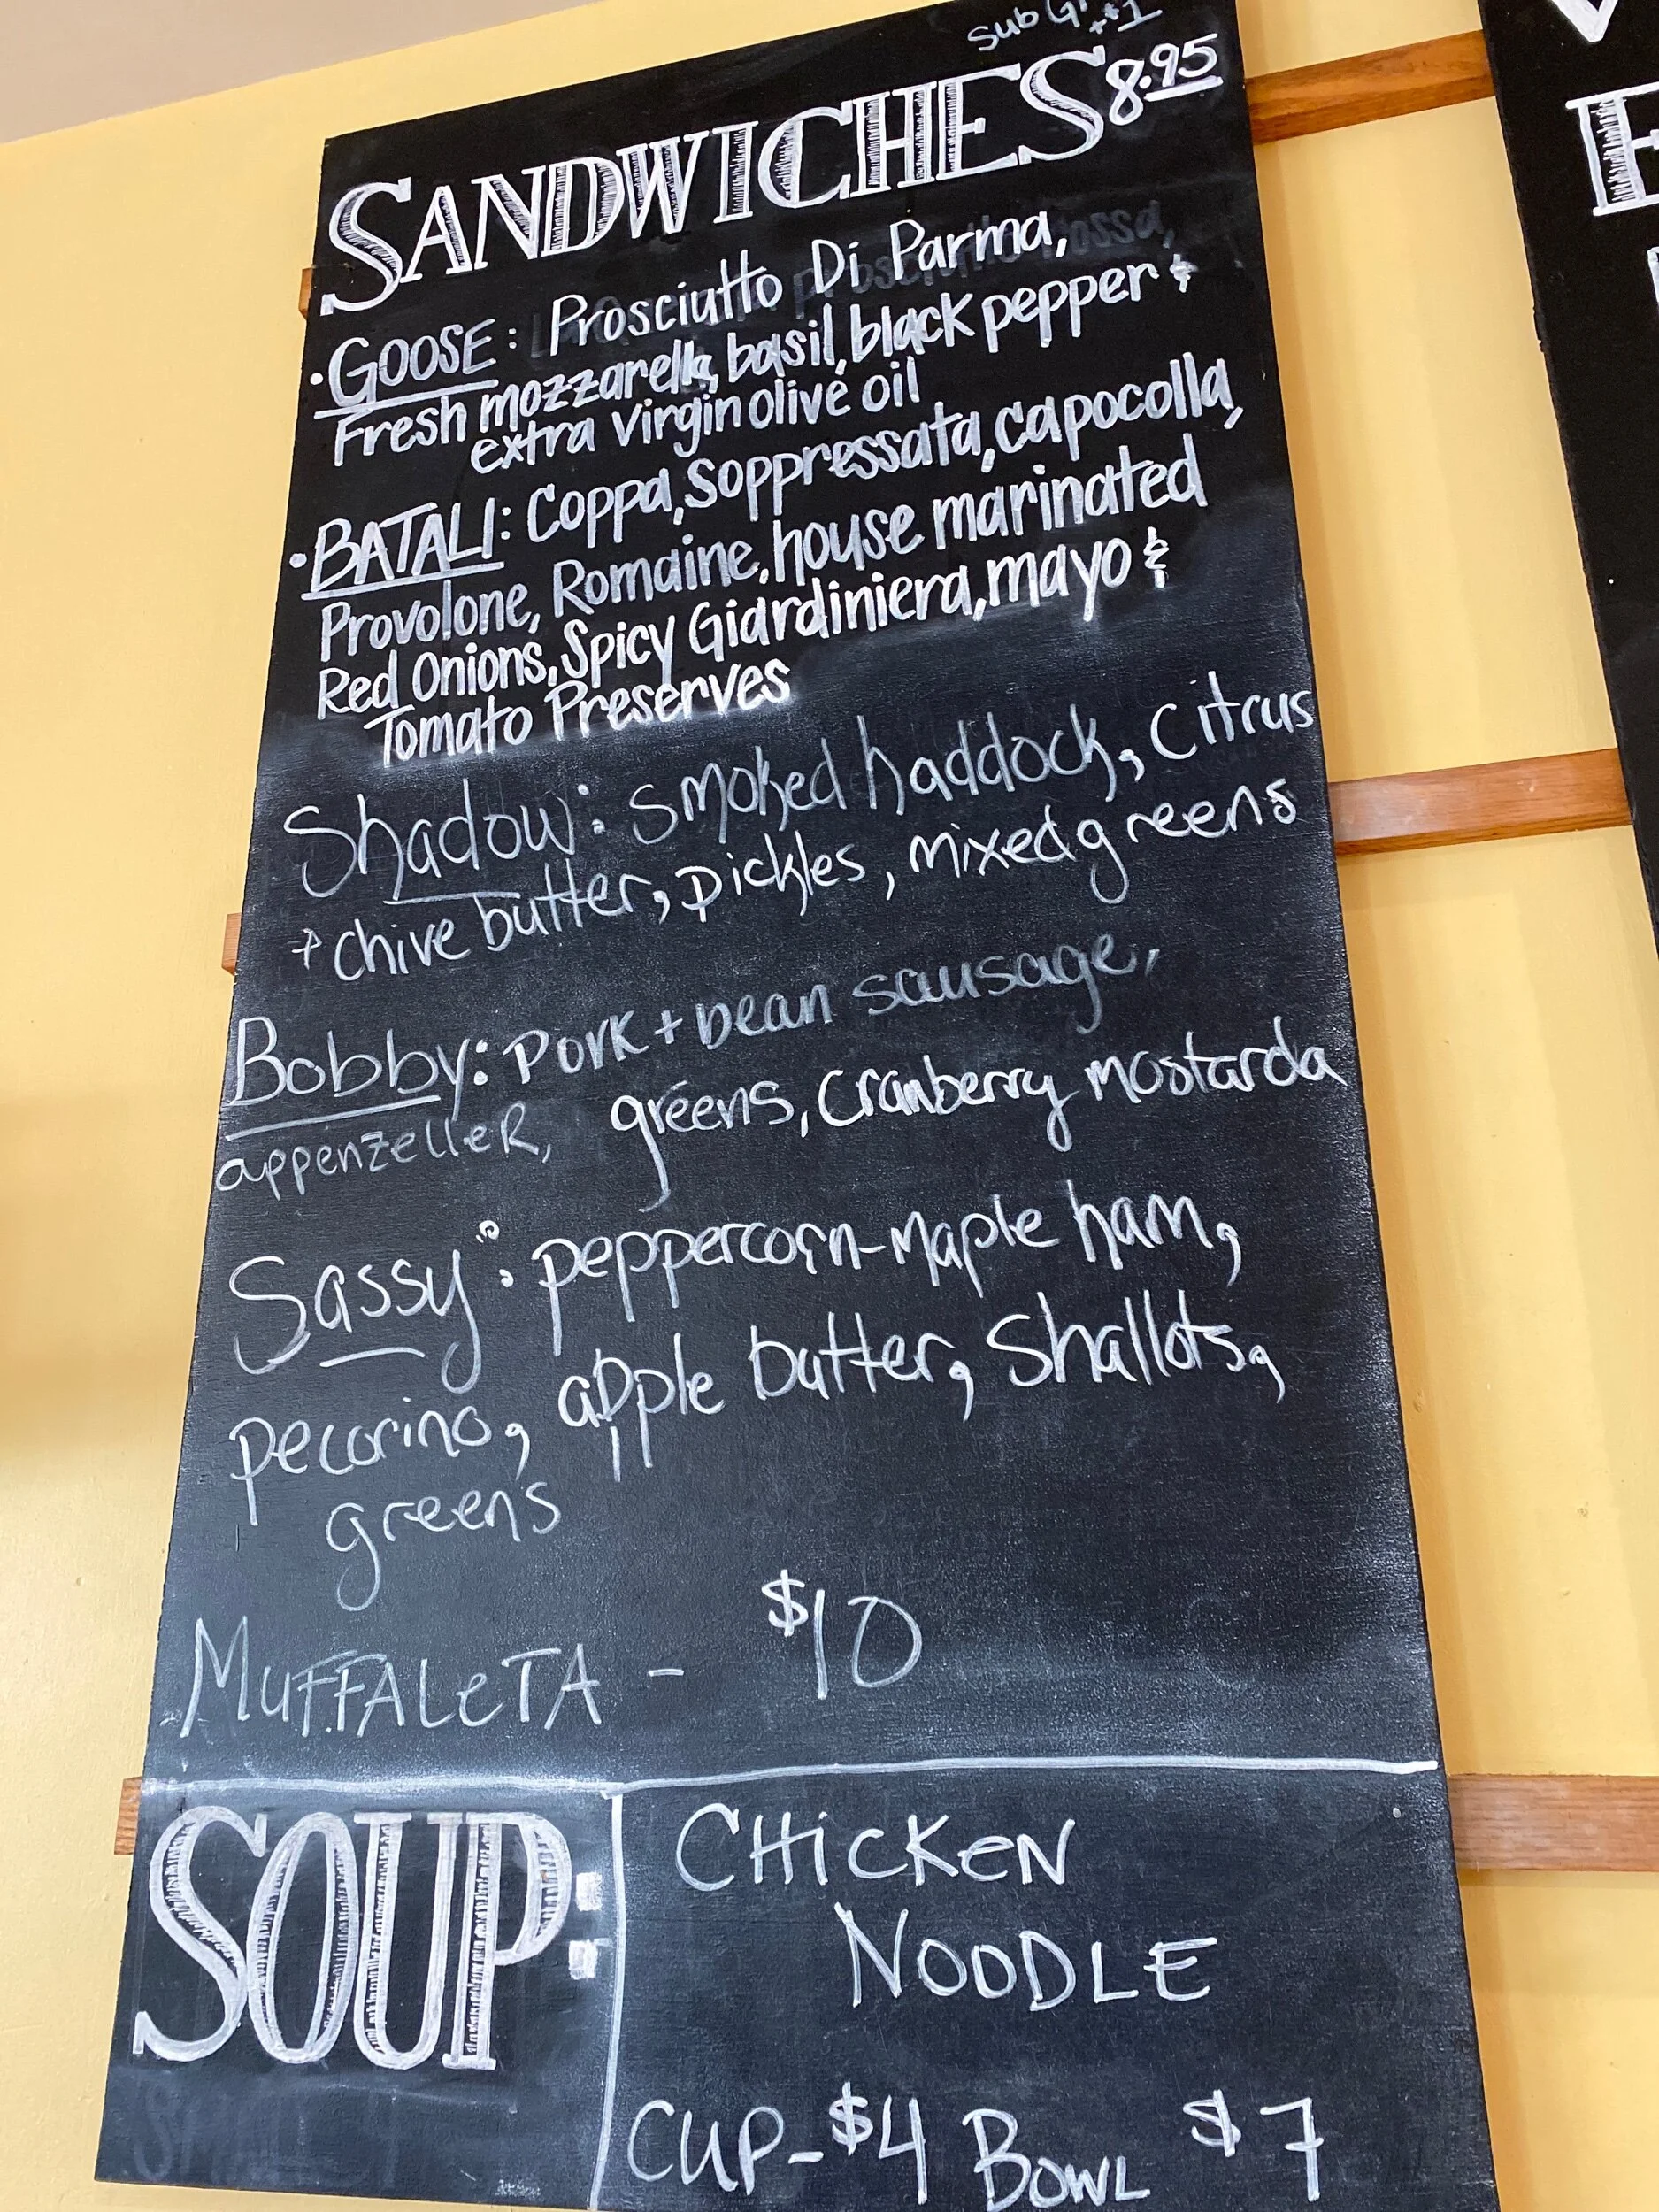 Sub
+$1
SANDWICHES 8.95
• GOOSE: Prosciutto Di Parma,
Fresh mozzarella, basil, black pepper &
extra virgin olive oil
• BATALI: Coppa, Soppressata, capocolla,
Provolone, Romaine, house marinated
Red Onions, Spicy Giardiniera, mayo &
Tomato Preserves
Shadow: smoked haddock, citrus
+ chive butter, pickles, mixed greens
Bobby: Pork + bean sausage,
appenzelleR, greens, cranberry mostarda
Sassy: peppercorn-maple ham,
pecorino, apple butter, shallots,
greens
MUFFALeTA - $10
SOUP: CHicKeN
NOODLE
CUP - $4 BOWL $7